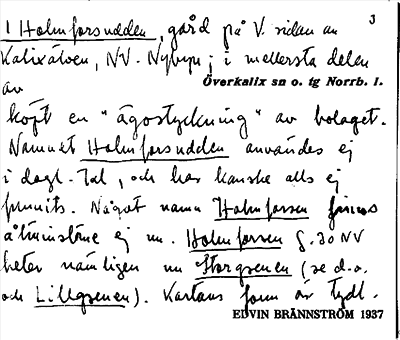 1 Holmforsudden, gård på V. sidan av 3
Kalixälven, NV. Nybyn; i mellersta delen
Överkalix sn o. tg Norrb. l.
av
köpt en "ägostyckning" av bolaget.
Namnet Holmforsudden användes ej
i dagl. tal, och har kanske alls ej
funnits. Något namn Holmforsen finnes
åtminstone ej nu. Holmforsen § 30 NV
heter nämligen nu Storgrenen (se d.o.
och Lillgrenen). Kartans form är tydl.
EDVIN BRÄNNSTRÖM 1937